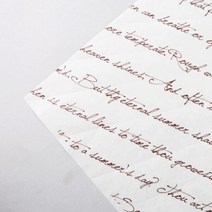 can breathe or
ore temperate: Rough
heaven shines, And often
But thy eternal summer sha
in eternal lines to time thou growest
to a summer's day? Thou art